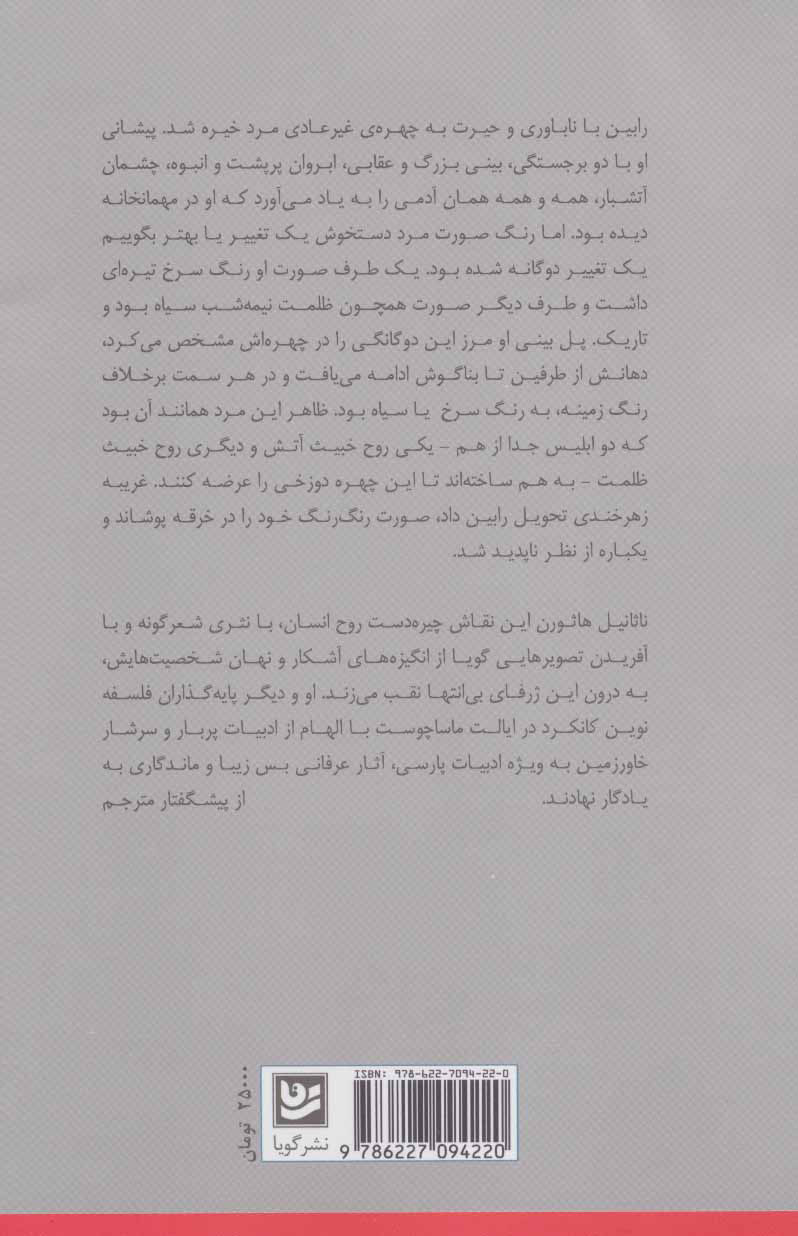 رابین با ناباوری و حیرت به چهره‌ی غیرعادی مرد خیره شد. پیشانی
او با دو برجستگی، بینی بزرگ و عقابی، ابروان پرپشت و انبوه، چشمان
آتشبار، همه و همه همان آدمی را به یاد می‌آورد که او در مهمانخانه
دیده بود. اما رنگ صورت مرد دستخوش یک تغییر یا بهتر بگوییم
یک تغییر دوگانه شده بود. یک طرف صورت او رنگ سرخ تیره‌ای
داشت و طرف دیگر صورت همچون ظلمت نیمه‌شب سیاه بود و
تاریک. پل بینی او مرز این دوگانگی را در چهره‌اش مشخص می‌کرد،
دهانش از طرفین تا بناگوش ادامه می‌یافت و در هر سمت برخلاف
رنگ زمینه، به رنگ سرخ یا سیاه بود. ظاهر این مرد همانند آن بود
که دو ابلیس جدا از هم - یکی روح خبیث آتش و دیگری روح خبیث
ظلمت - به هم ساخته‌اند تا این چهره دوزخی را عرضه کنند. غریبه
زهرخندی تحویل رابین داد، صورت رنگ‌رنگ خود را در خرقه پوشاند و
یکباره از نظر ناپدید شد.
ناثانیل هاثورن این نقاش چیره‌دست روح انسان، با نثری شعرگونه و با
آفریدن تصویرهایی گویا از انگیزه‌های آشکار و نهان شخصیت‌هایش،
به درون این ژرفای بی‌انتها نقب می‌زند. او و دیگر پایه‌گذاران فلسفه
نوین کانکرد در ایالت ماساچوست با الهام از ادبیات پربار و سرشار
خاورزمین به ویژه ادبیات پارسی، آثار عرفانی بس زیبا و ماندگاری به
یادگار نهادند. از پیشگفتار مترجم
ISBN: 978-622-7094-22-0
9 786227 094220
نشر گویا
۲۵۰۰۰ تومان